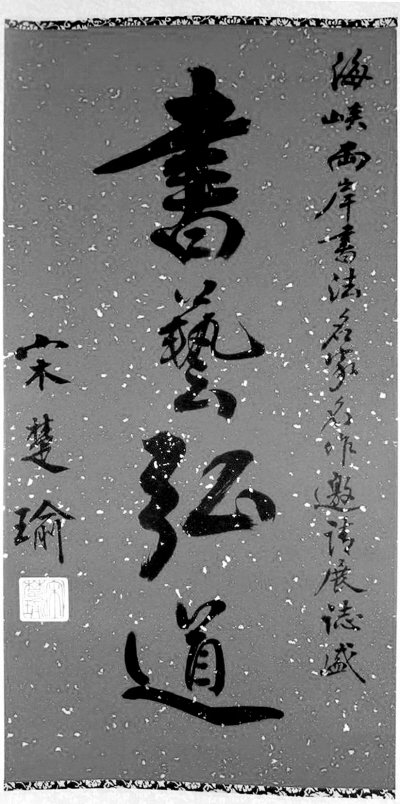 海峽兩岸書法名家名作邀請展誌盛
書藝弘道
宋楚瑜